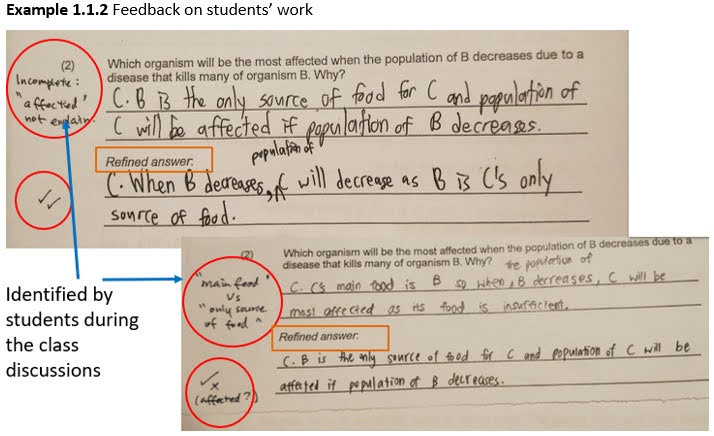 Example 1.1.2 Feedback on students' work
(2)
Incomplete :
"affected"
not explain.
Which organism will be the most affected when the population of B decreases due to a
disease that kills many of organism B. Why?
C. B is the only source of food for C and population of
C will be affected if population of B decreases.
Refined answer:
population of
C. When B decreases, C will decrease as B is C's only
source of food.
(2)
"main food"
vs
"only source
of food"
Which organism will be the most affected when the population of B decreases due to a
disease that kills many of organism B. Why?
the population of
C. C's main food is B so when, B decreases, C will be
most affected as its food is insufficient.
Refined answer:
C. B is the only source of food for C and population of C will be
affected if population of B decreases.
(affected?)
Identified by
students during
the class
discussions